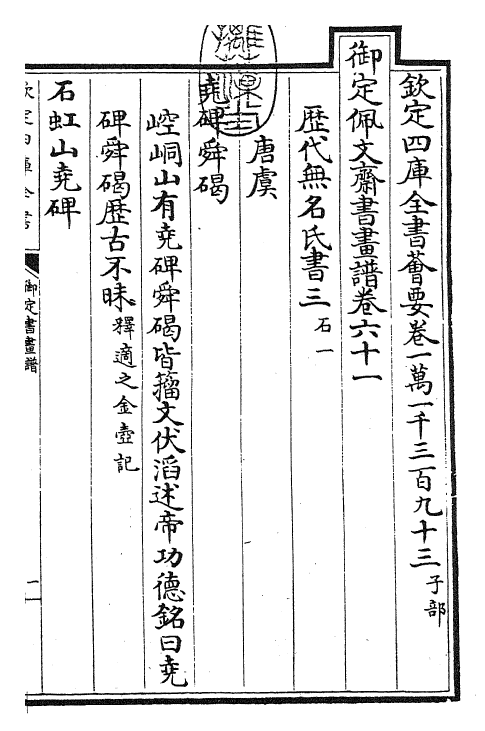 欽定四庫全書薈要卷一萬一千三百九十三子部
御定佩文齋書畫譜卷六十一
歴代無名氏書三石一
唐虞
堯碑舜碣
崆峒山有堯碑舜碣皆籀文伏滔述帝功德銘曰堯
碑舜碣歴古不昧釋適之金壺記
石虹山堯碑
御定書畫譜
一